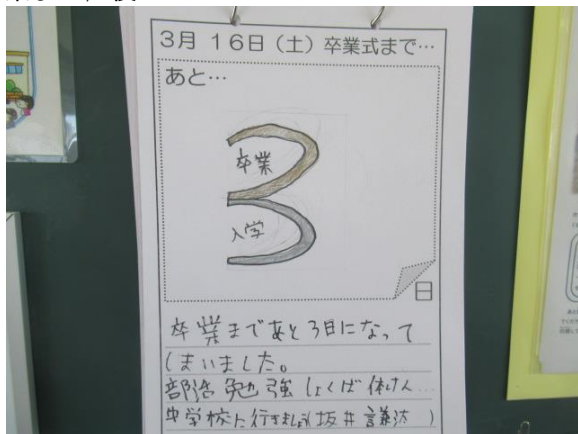 3月 16日（土）卒業式まで…
あと…
3
卒業
入学
日
卒業まであと3日になって
しまいました。
部活 勉強 しょくば体けん…
中学校に行きましょう(坂井